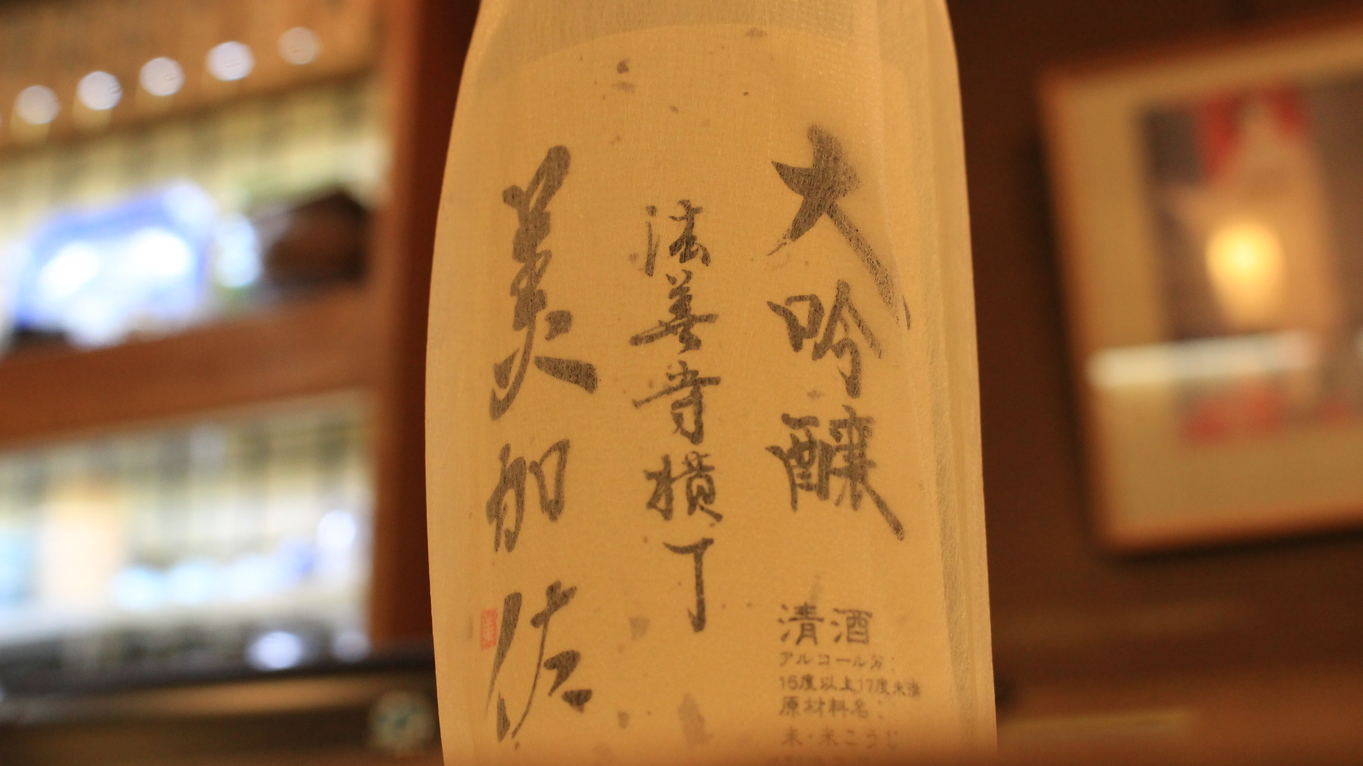 大吟醸
法善寺横丁
美加佐
清酒
アルコール分：
16度以上17度未満
原材料名：
米・米こうじ